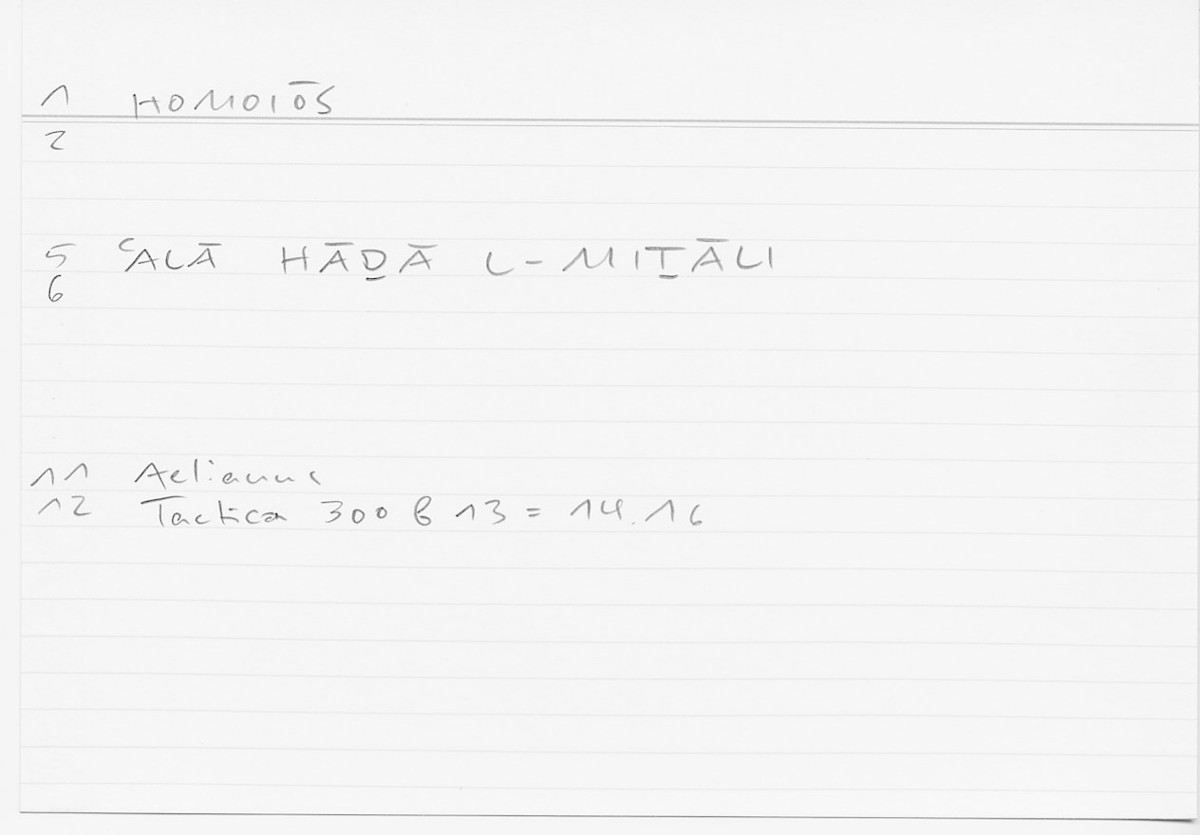 1 HOMOIŌS
2
5 ʿALĀ HĀḎĀ L-MIṮĀLI
6
11 Aelianus
12 Tactica 300 B 13 = 14.16